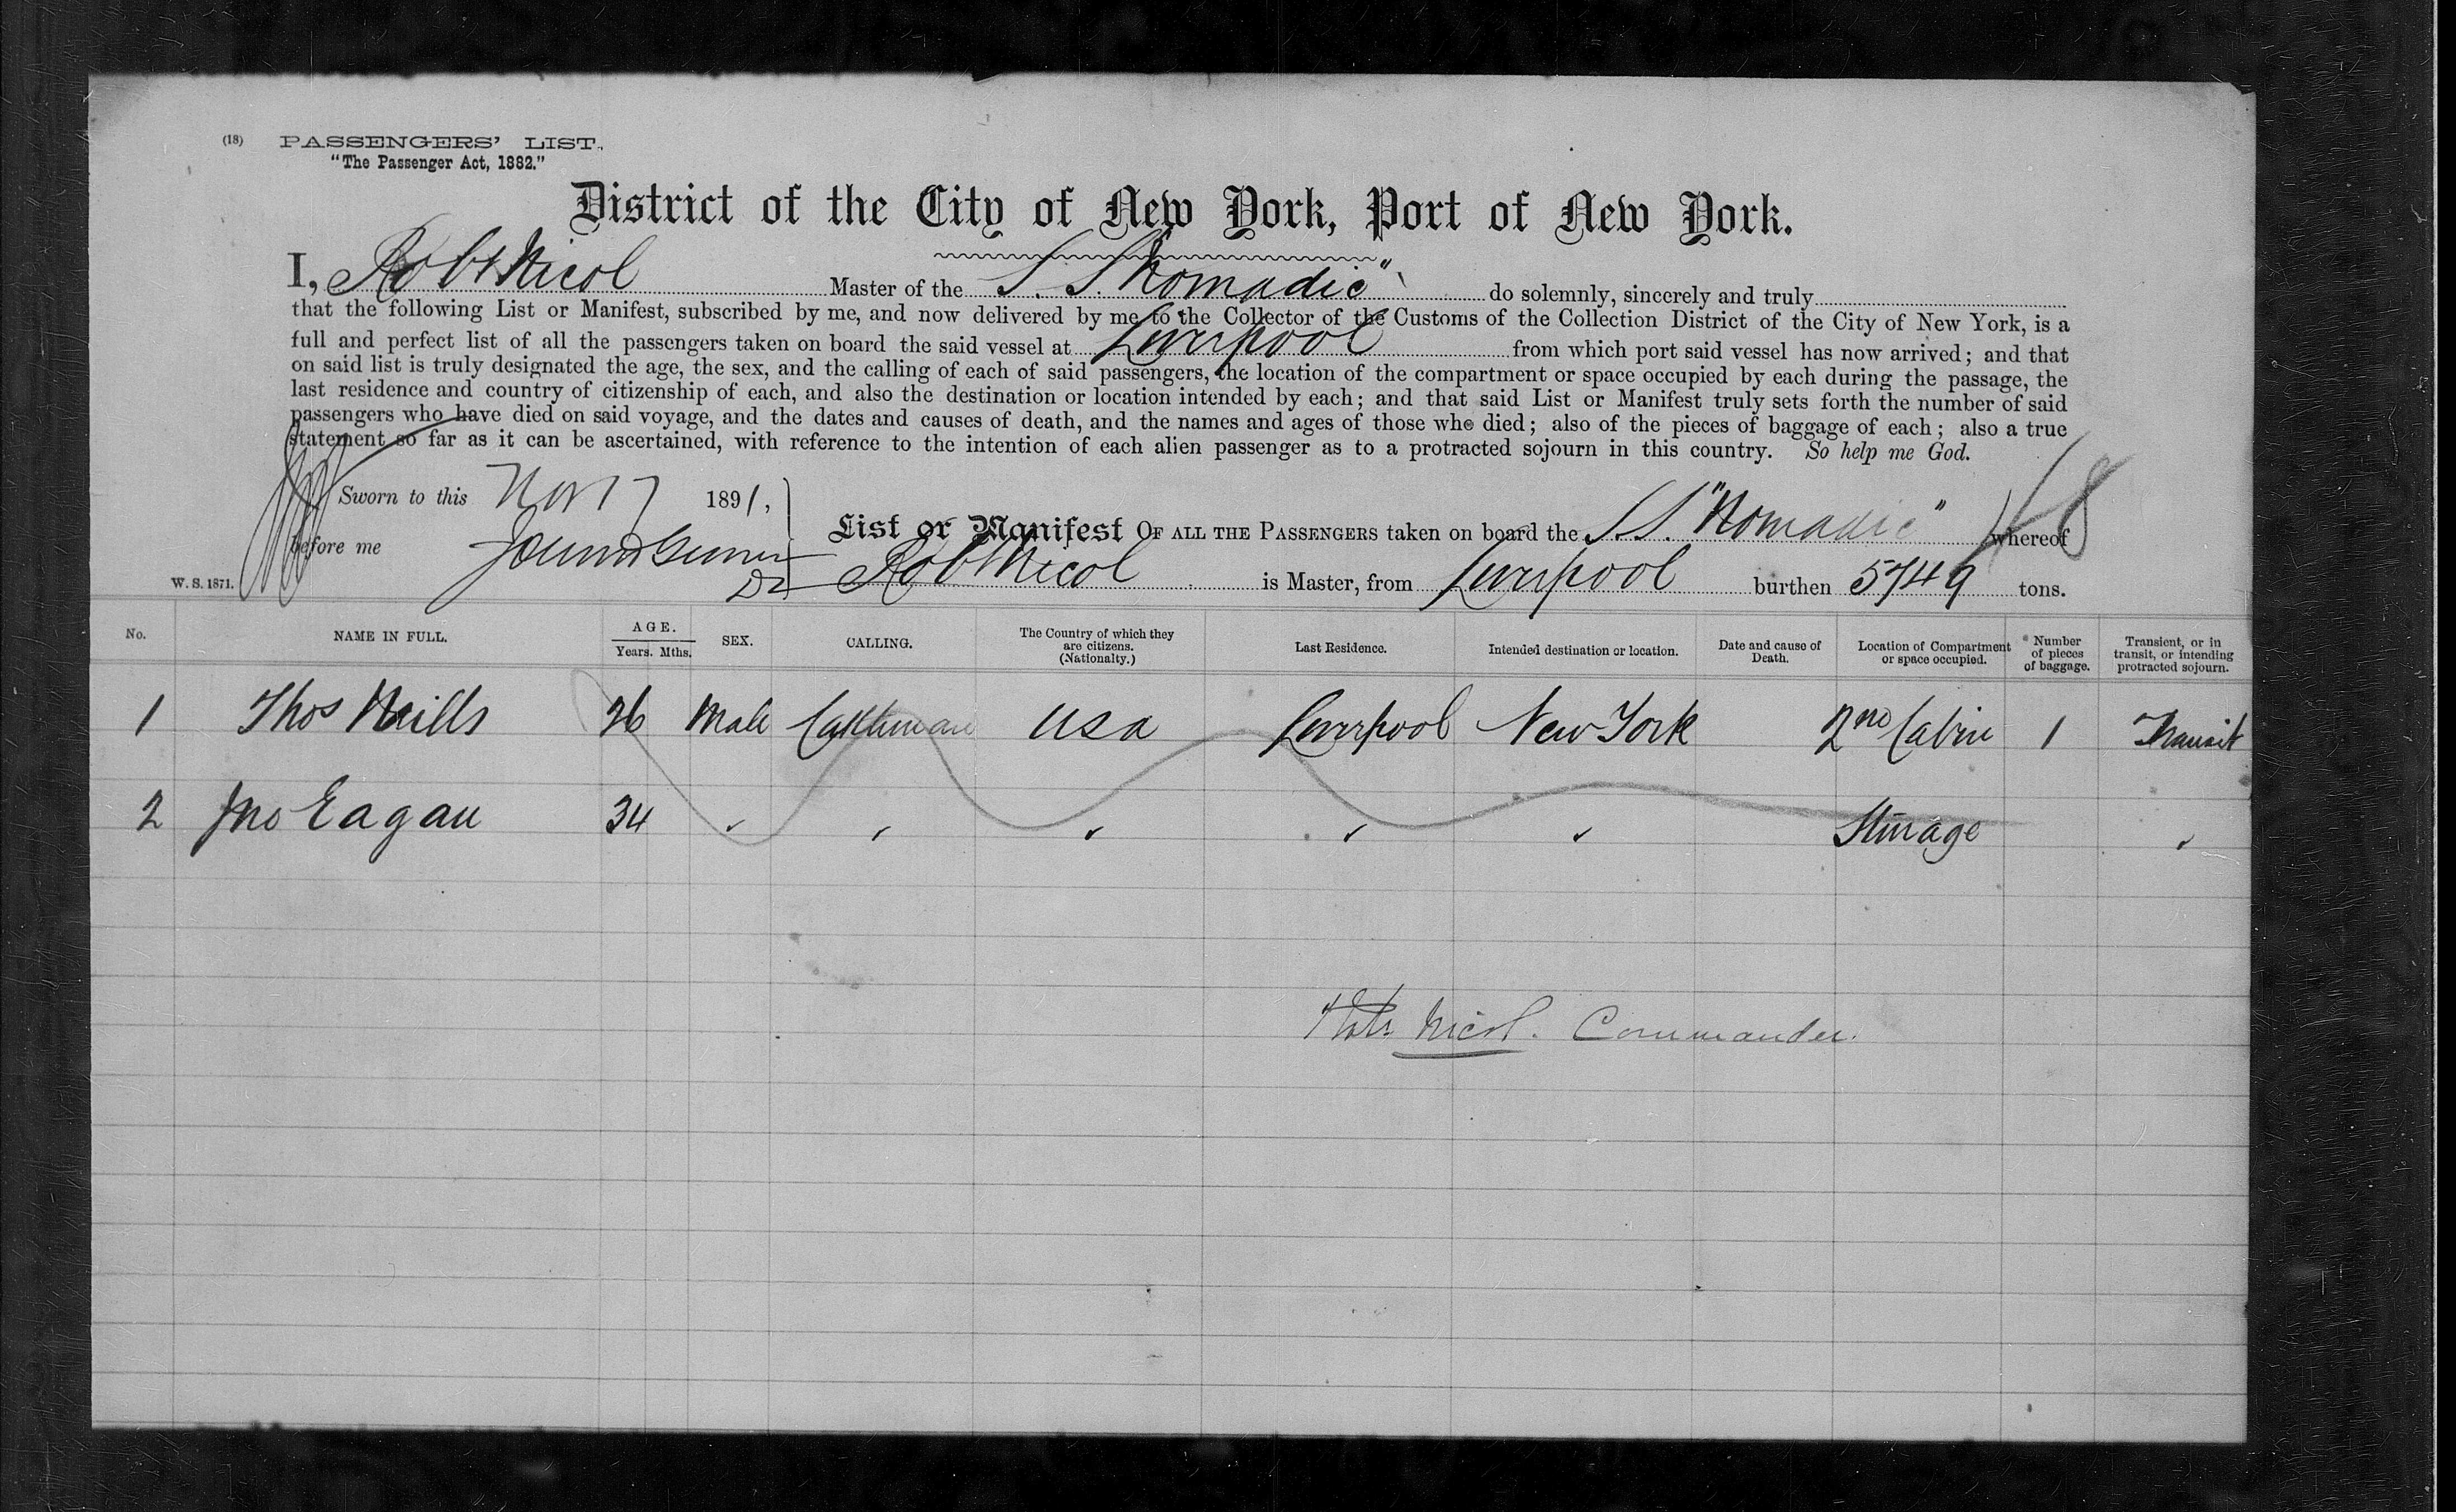 (18) PASSENGERS' LIST.
"The Passenger Act, 1882."
District of the City of New York, Port of New York.
I, Robt Nicol Master of the S.S. "Nomadic" do solemnly, sincerely and truly
that the following List or Manifest, subscribed by me, and now delivered by me to the Collector of the Customs of the Collection District of the City of New York, is a
full and perfect list of all the passengers taken on board the said vessel at Liverpool from which port said vessel has now arrived; and that
on said list is truly designated the age, the sex, and the calling of each of said passengers, the location of the compartment or space occupied by each during the passage, the
last residence and country of citizenship of each, and also the destination or location intended by each; and that said List or Manifest truly sets forth the number of said
passengers who have died on said voyage, and the dates and causes of death, and the names and ages of those who died; also of the pieces of baggage of each; also a true
statement so far as it can be ascertained, with reference to the intention of each alien passenger as to a protracted sojourn in this country. So help me God.
Sworn to this Nov 7 1891,
before me
List or Manifest OF ALL THE PASSENGERS taken on board the S.S. "Nomadic" whereof
Robt Nicol is Master, from Liverpool burthen 5749 tons.
W. S. 1871.
No. NAME IN FULL. AGE. Years. Mths. SEX. CALLING. The Country of which they are citizens. (Nationalty.) Last Residence. Intended destination or location. Date and cause of Death. Location of Compartment or space occupied. Number of pieces of baggage. Transient, or in transit, or intending protracted sojourn.
1 Thos Neills 26 Male Cattleman USA Liverpool New York 2nd Cabin 1 Transit
2 Jno Eagan 34 " " " " " Steerage "
Robt. Nicol. Commander.